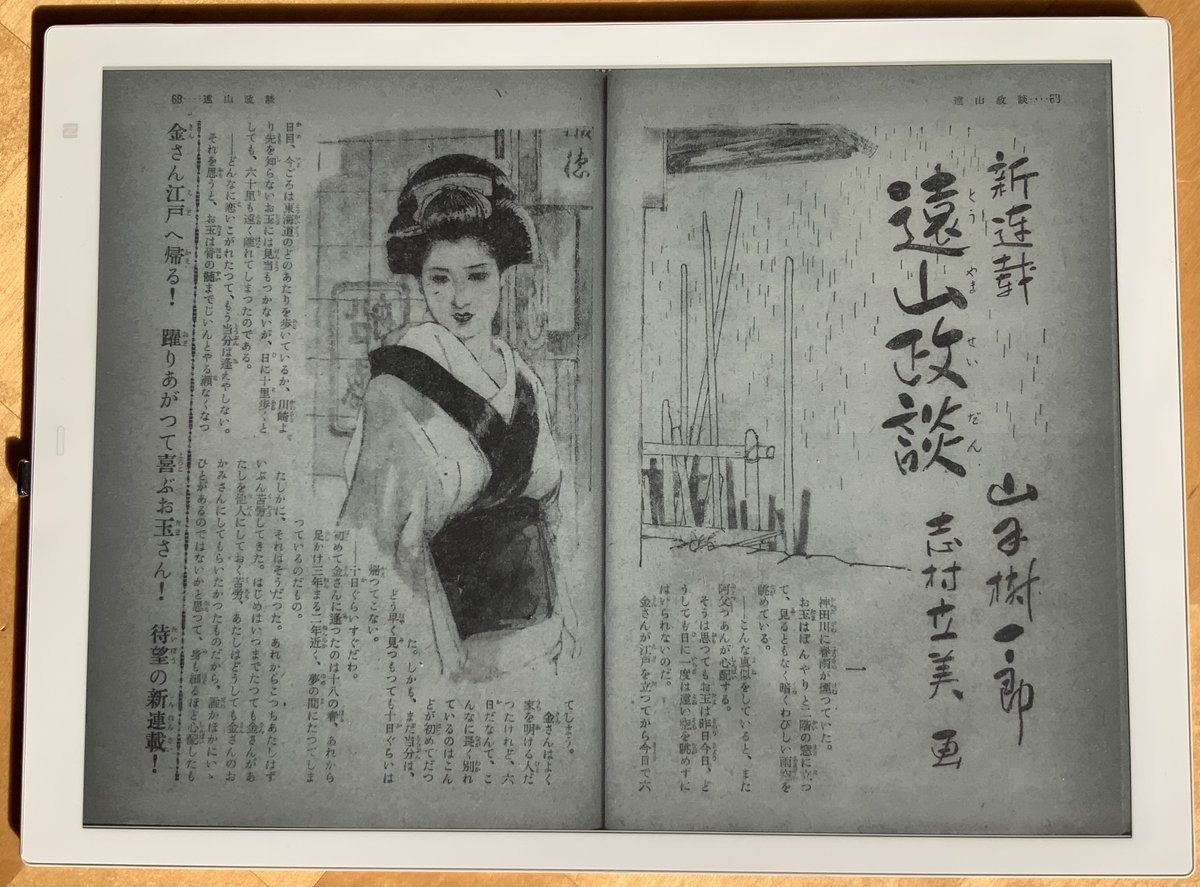 遠山政談
新連載
遠山政談
とうやませいだん
山手樹一郎
志村立美 画
一
神田川に春雨が煙つていた。
お玉はぼんやりと二階の窓に立つ
て、見るともなく暗くわびしい雨空を
眺めている。
――こんな真似をしていると、また
阿父つあんが心配する。
そうは思つてもお玉は昨日今日、ど
うしても日に一度は遠い空を眺めずに
はいられないのだ。
金さんが江戸を立つてから今日で六
遠山政談
日目、今ごろは東海道のどのあたりを歩いているか、川崎よ
り先を知らないお玉には見当もつかないが、日に十里歩くと
しても、六十里も遠く離れてしまつたのである。
――どんなに恋いこがれたつて、もう当分は逢えやしない。
それを思うと、お玉は骨の髄までじいんとやる瀬なくなつ
てしまう。
金さんはよく
家を明ける人だ
つたけれど、六
日だなんて、こ
んなに長く別れ
ているのはこん
どが初めてだつ
た。しかも、まだ当分は、
どう早く見つもつても十日ぐらいは
帰つてこない。
――十日ぐらいすぐだわ。
初めて金さんに逢つたのは十八の春、あれから
足かけ三年まる二年近く、夢の間にたつてしま
つているのだもの。
たしかに、それはそうだつた。あれからこつちあたしはず
いぶん苦労してきた。はじめはいつまでたつても金さんがあ
たしを他人にしておく苦労、あたしはどうしても金さんのお
かみさんにしてもらいたかつたものだから、誰かほかにいゝ
ひとがあるのではないかと思つて、身も細るほど心配したも
金さん江戸へ帰る! 躍りあがつて喜ぶお玉さん! 待望の新連載!